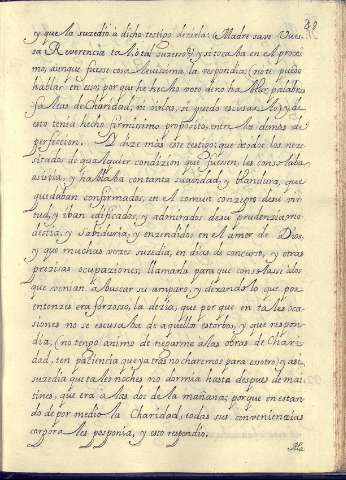 48
y que la suzedió á dicho testigo dezirla: (Madre save Vues-
sa Reverencia tal, ó tal suzesso?) y si tocaba en el proxi-
mo, aunque fuesse cosa levissima, la respondia: (no te puedo
hablar en eso; por que he hecho voto de no hablar palabras
faltas de Charidad, ni oirlas, si puedo escusarlo) y de
esto tenia hecho firmissimo proposito, entre los demás de
perfeccion. Y dize más este testigo; que desde los nece-
sitados de qualquier condizion que fuesen, les consolaba
asistia, y hablaba con tanta suavidad, y blandura, que
quedaban confirmados, en el comun conzepto de su vir-
tud, y iban edificados, y admirados de su prudenzia, mo-
destia, y Sabiduria, y enzendidos en el amor de Dios.
y que muchas vezes suzedia, en dias de concurso, y otras
prezisas ocupaciones; llamarla para que consolase á los
que venian á buscar su amparo, y dexando lo que por
entonzes era forzosso, la dezia, que por que en tales oca-
siones no se escusaba de aquellos estorbos, y que respon-
dia, (no tengo animo de negarme á las obras de Chari-
dad, ten paciencia que ya tras nocharemos para essotro) y assi
suzedia que tales noches no dormia hasta despues de mai-
tines, que era á las dos de la mañana; porque en estan-
do de por medio la Charidad, todas sus convenienzias
corporales posponia, y esto respondio.